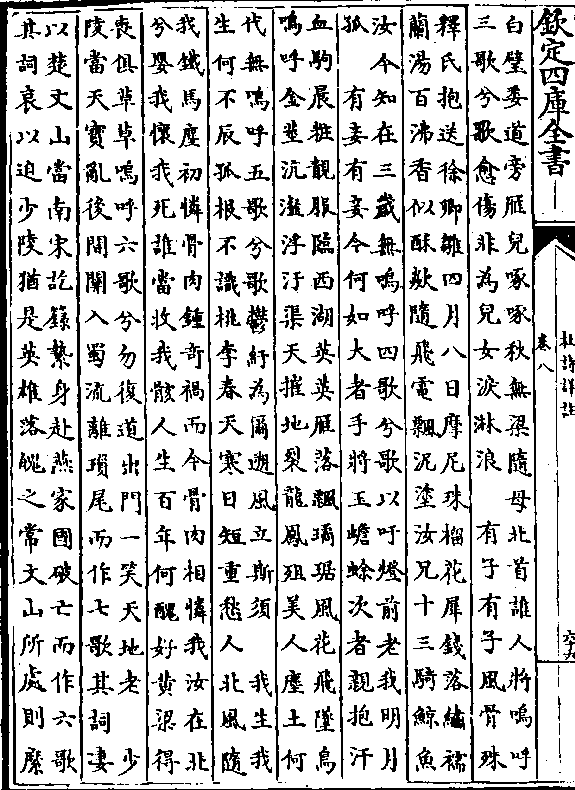 欽定四庫全書
杜詩詳註
卷八
白璧委道旁雁兒啄啄秋無梁隨母北首誰人將嗚呼
三歌兮歌愈傷非為兒女淚淋浪　有子有子風骨殊
釋氏抱送徐卿雛四月八日摩尼珠榴花犀錢落繡襦
蘭湯百沸香似酥欻隨飛電飄泥塗汝兄十三騎鯨魚
汝今知在三歲無嗚呼四歌兮歌以吁燈前老我明月
孤　有妾有妾今何如大者手將玉蟾蜍次者親抱汗
血駒晨粧靚服臨西湖英英雁落飄璚琚風花飛墜鳥
嗚呼金莖沆瀣浮汙渠天摧地裂龍鳳殂美人塵土何
代無嗚呼五歌兮歌鬱紆為爾遡風立斯須　我生我
生何不辰孤根不識桃李春天寒日短重愁人北風隨
我鐵馬塵初憐骨肉鍾奇禍而今骨肉相憐我汝在北
兮嬰我懷我死誰當收我骸人生百年何醜好黃梁得
喪俱草草嗚呼六歌兮勿復道出門一笑天地老　少
陵當天寶亂後間關入蜀流離瑣尾而作七歌其詞凄
以楚文山當南宋訖籙縶身赴燕家國破亡而作六歌
其詞哀以迫少陵猶是英雄落魄之常文山所處則糜